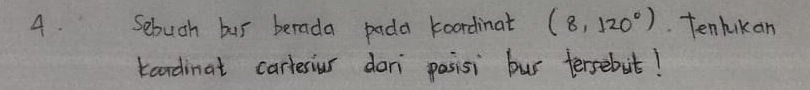 4. Sebuah bus berada pada koordinat (8, 120°). Tentukan
koordinat cartesius dari posisi bus tersebut!